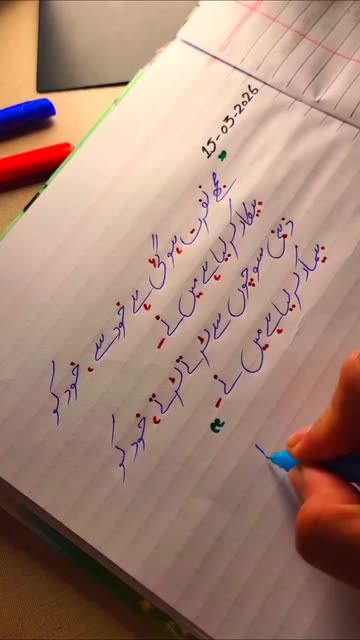 15-03-2026
"مجھے نفرت ہو گئی ہے خود سے، خود کو
بیمار کر لیا ہے میں نے۔
ذہنی سوچوں سے لڑتے لڑتے، خود کو
بیمار کر لیا ہے میں نے۔"